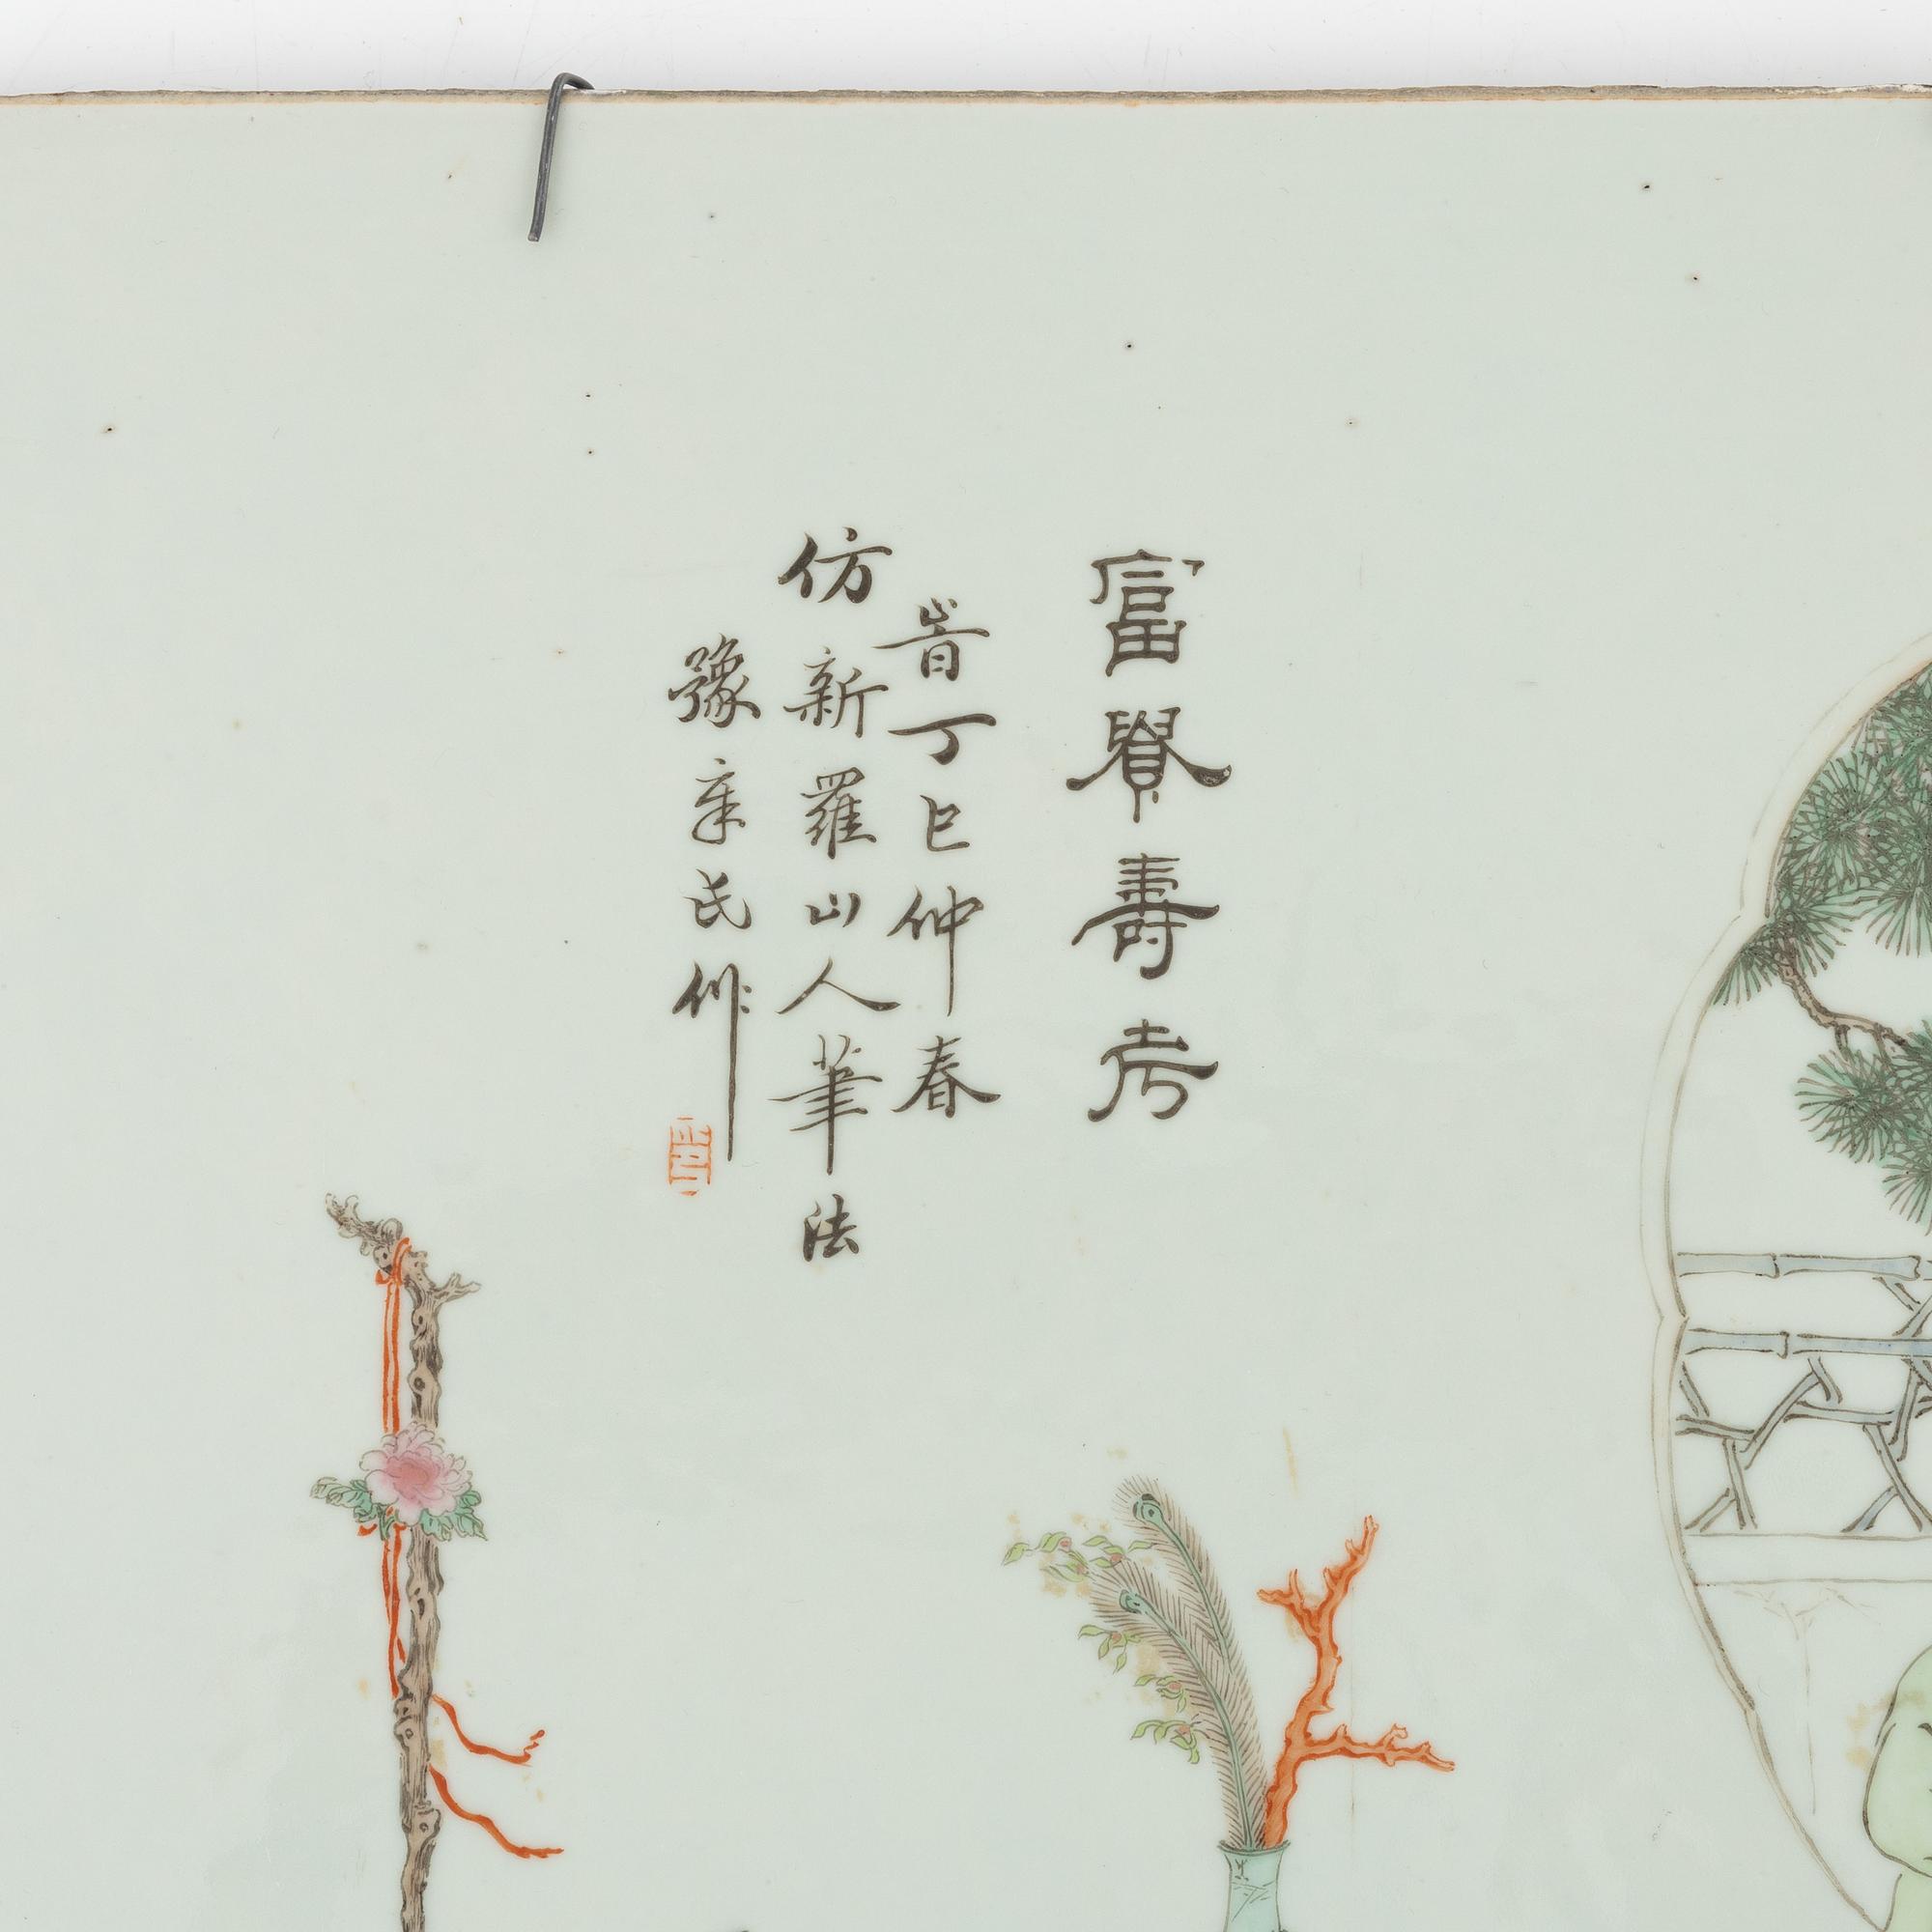 富貴壽考
旹丁巳仲春
仿新羅山人筆法
豫章氏作